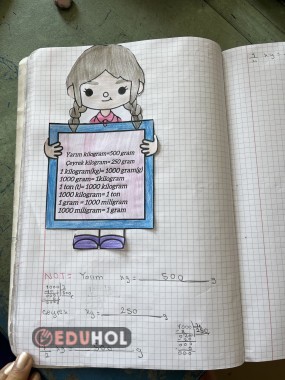 Yarım kilogram=500 gram
Çeyrek kilogram=250 gram
1 kilogram(kg)= 1000 gram(g)
1000 gram= 1kilogram
1 ton (t)= 1000 kilogram
1000 kilogram= 1 ton
1 gram = 1000 miligram
1000 miligram= 1 gram
NOT: Yarım kg = 500 g
Çeyrek kg = 250 g
EDUHOL